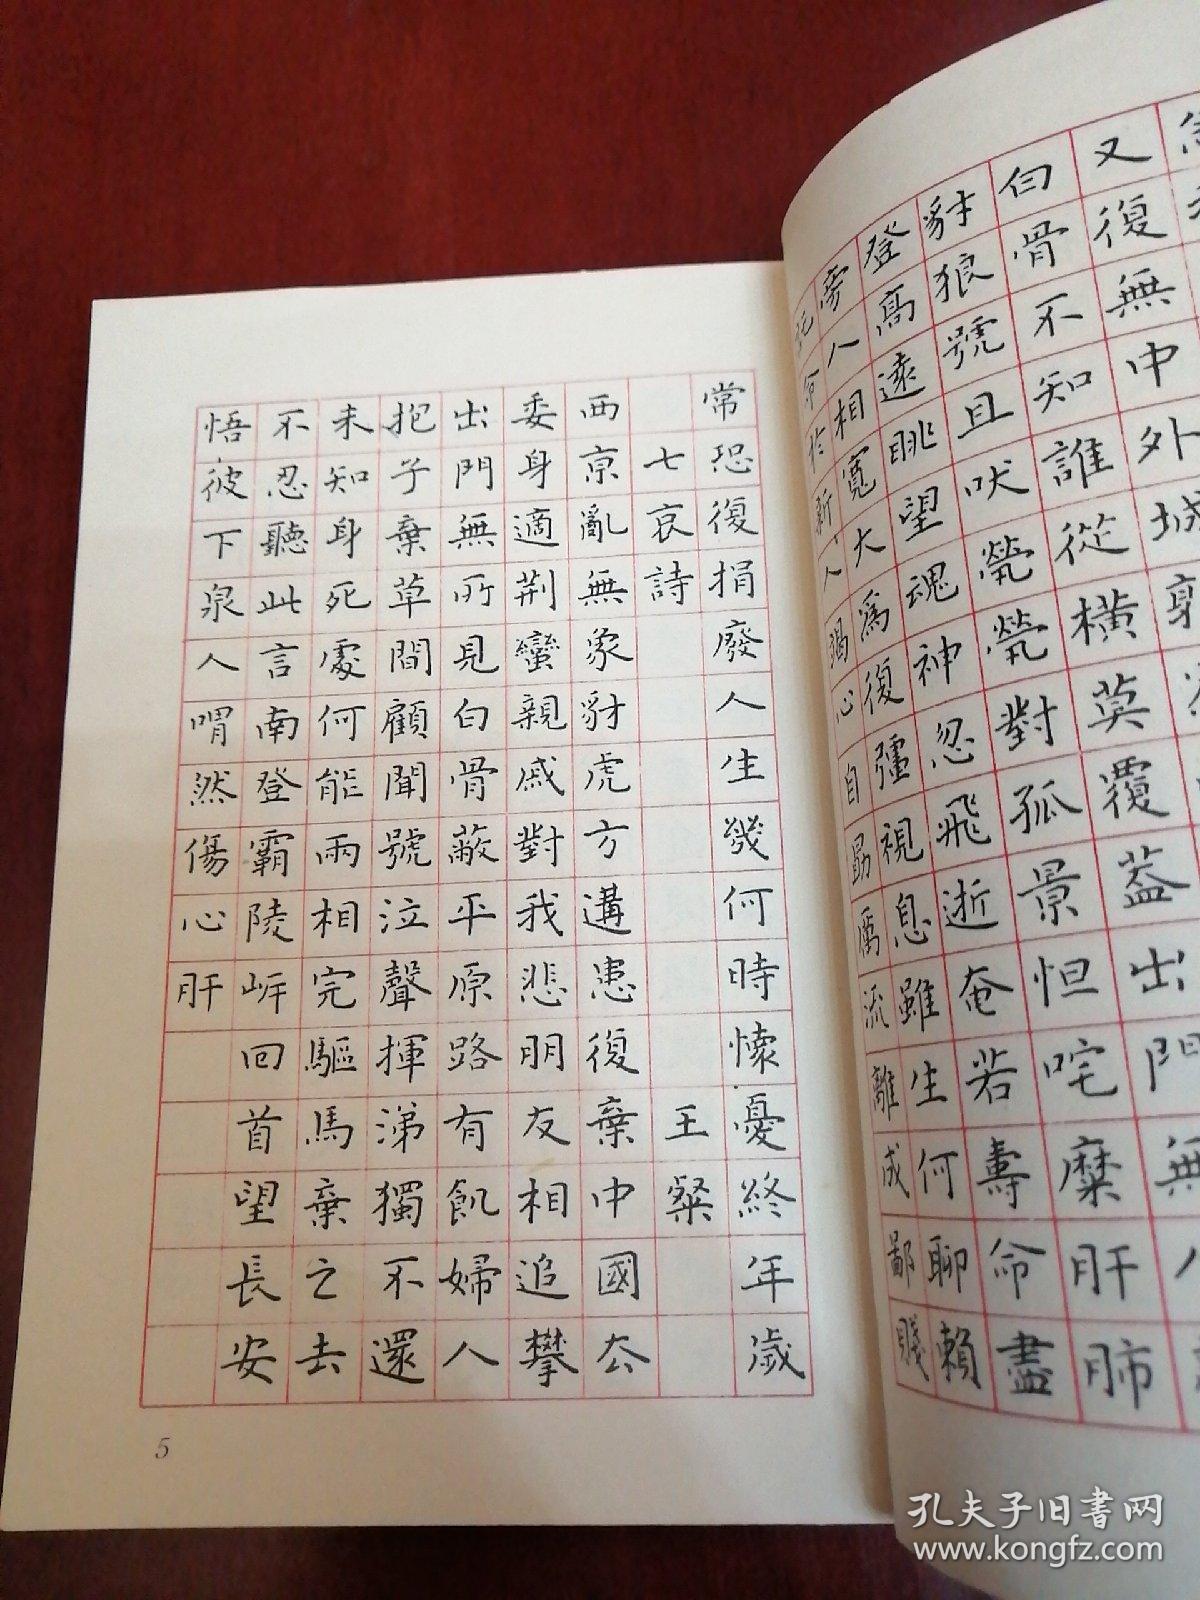 又復無中外城
白骨不知誰從橫莫覆蓋出門無人
豺狼號且吠煢煢對孤景怛咤糜肝肺
登高遠眺望魂神忽飛逝奄若壽命盡
旁人相寬大為復彊視息雖生何聊賴
託命於新人竭心自勗厲流離成鄙賤
常恐復捐廢人生幾何時懷憂終年歲
七哀詩 王粲
西京亂無象豺虎方遘患復棄中國去
委身適荊蠻親戚對我悲朋友相追攀
出門無所見白骨蔽平原路有飢婦人
抱子棄草間顧聞號泣聲揮涕獨不還
未知身死處何能兩相完驅馬棄之去
不忍聽此言南登霸陵岸回首望長安
悟彼下泉人喟然傷心肝
5
孔夫子旧书网
www.kongfz.com